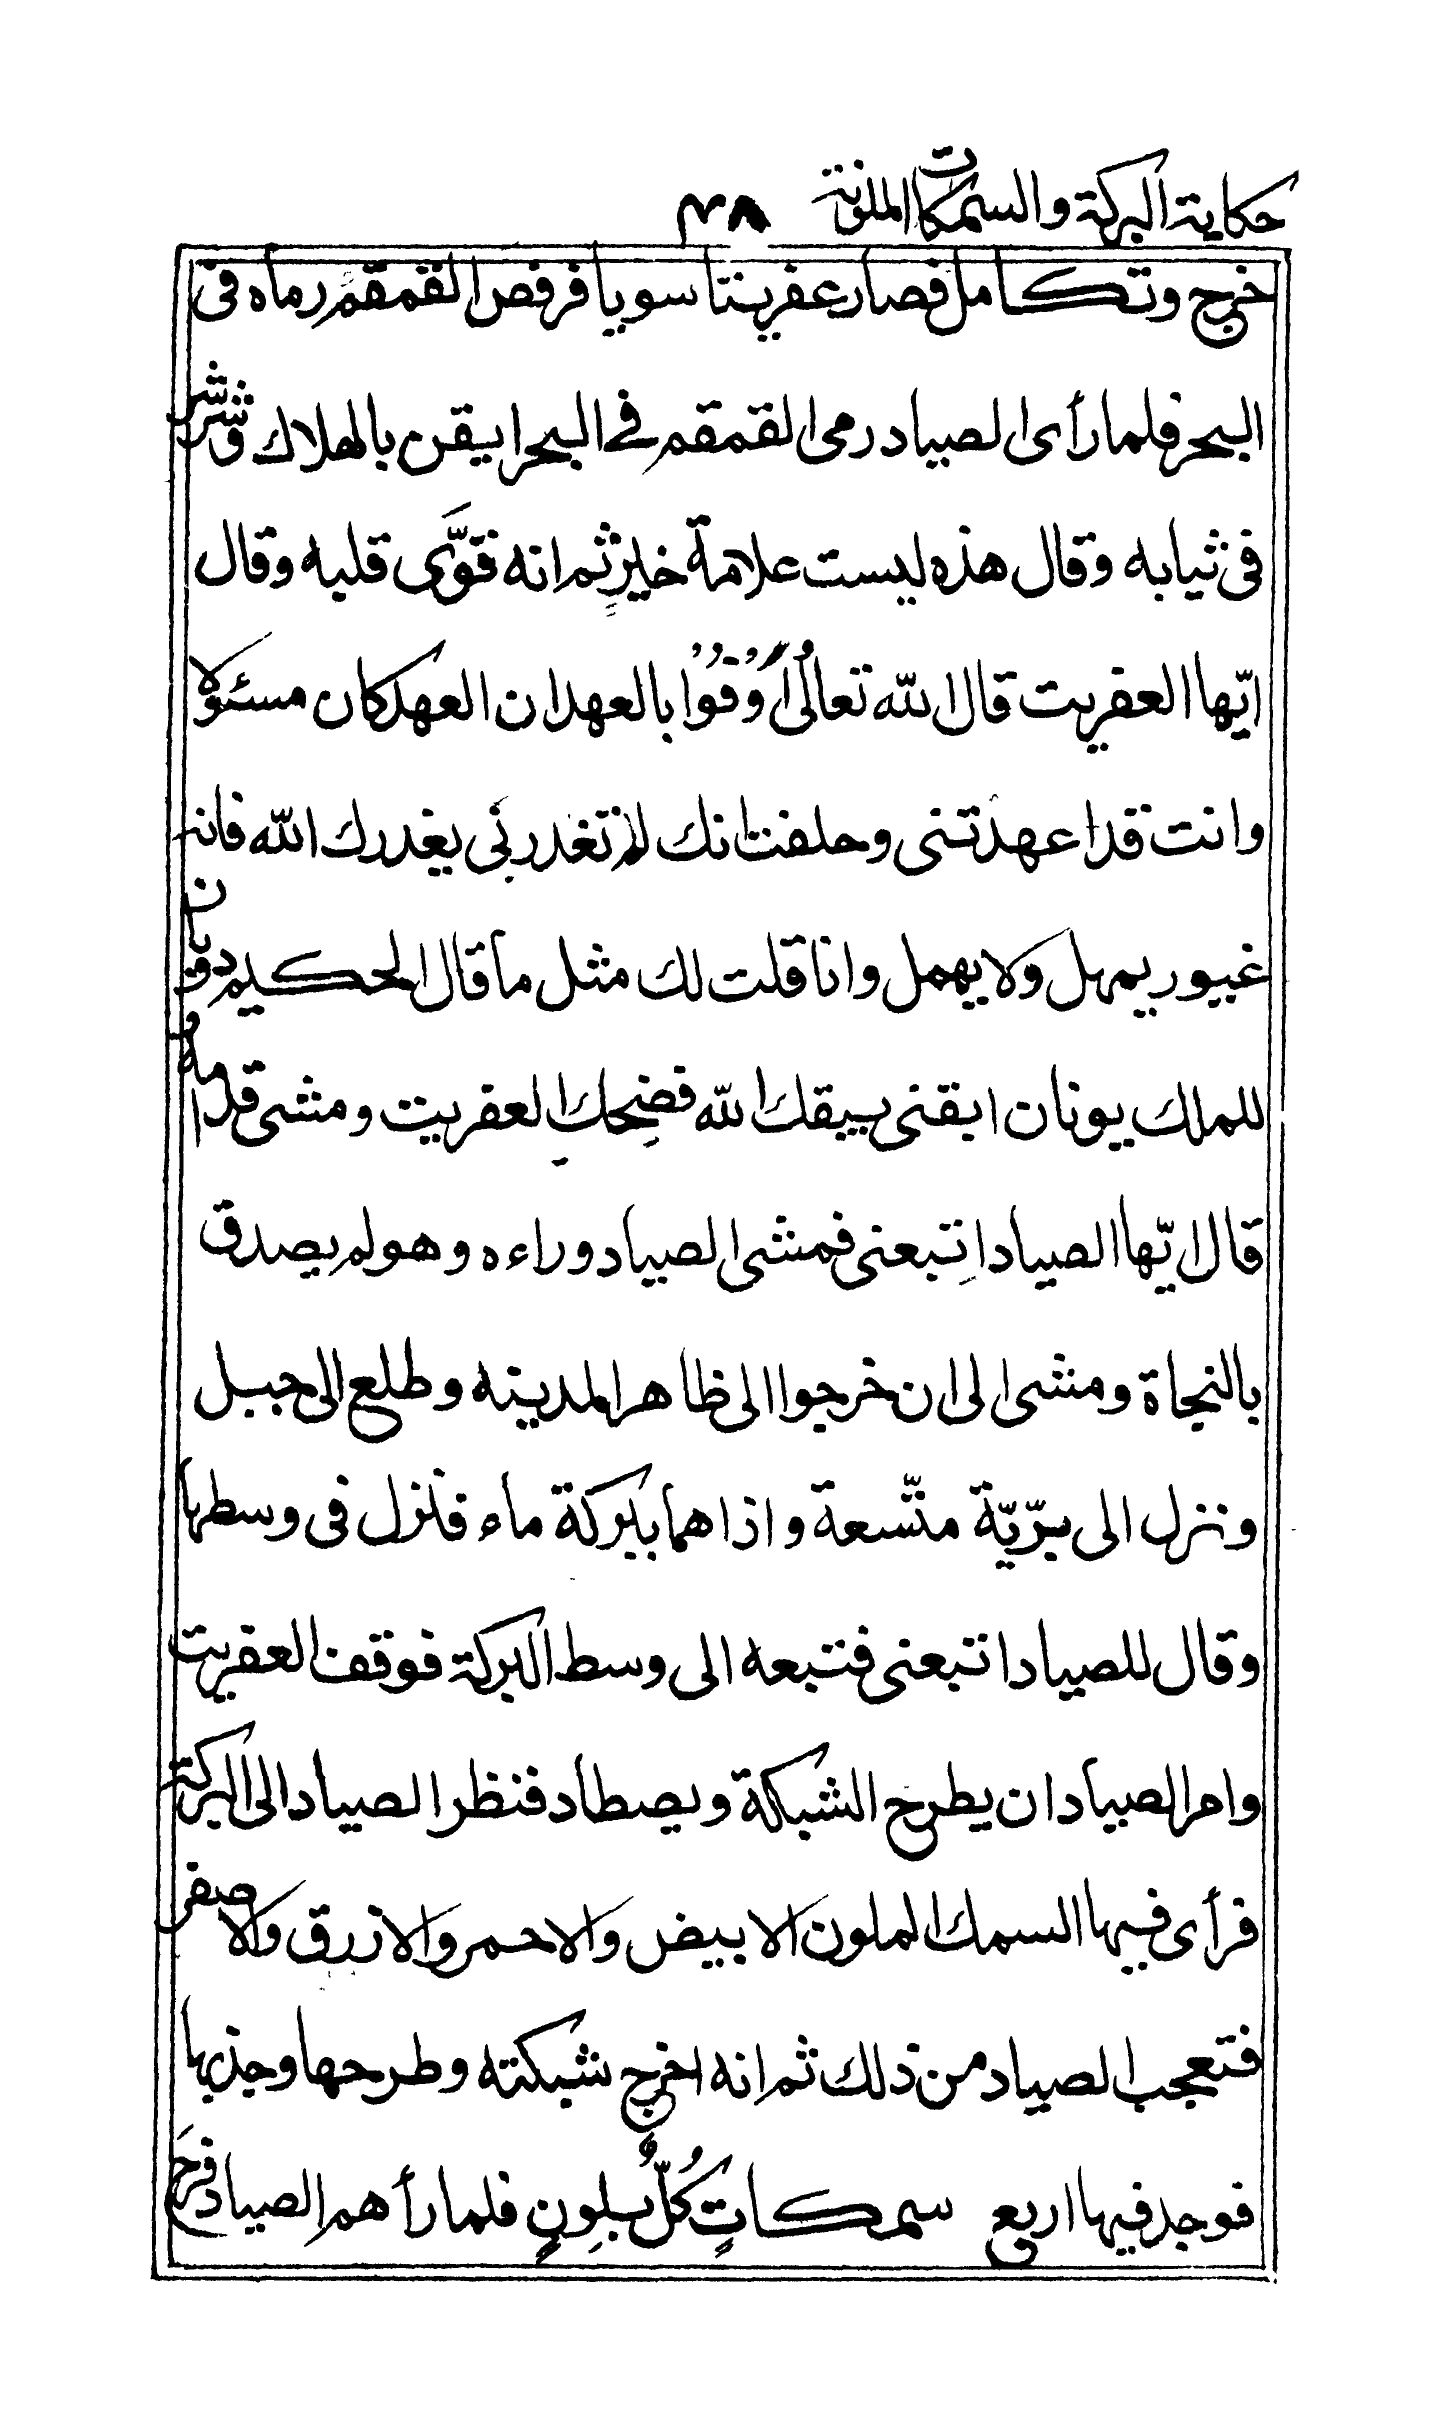 حكاية البركة والسمكات الملونة ٣٨
خرج وتكامل فصار عفريتا سويا فرفص القمقم رماه فى
البحر فلما رأى الصياد رمى القمقم فى البحر ايقن بالهلاك وشرشر
فى ثيابه وقال هذه ليست علامة خيرٍ ثم انه قوَّى قلبه وقال
ايّها العفريت قال الله تعالى أَوْفُوْا بالعهد ان العهد كان مسئولا
وانت قد اعهدتنى وحلفت انك لم تغدر بى يغدرك الله فانه
غيور يمهل ولا يهمل وانا قلت لك مثل ما قال الحكيم دوبان
للملك يونان ابقنى يبقك الله فضحك العفريت ومشى قدامه و
قال ايّها الصياد اِتبعنى فمشى الصياد وراءه وهو لم يصدق
بالنجاة ومشى الى ان خرجوا الى ظاهر المدينه وطلع الى جبل
ونزل الى برّيّة متّسعة واذا هما ببركة ماء فنزل فى وسطها
وقال للصياد اتبعنى فتبعه الى وسط البركة فوقف العفريت
وامر الصياد ان يطرح الشبكة ويصطاد فنظر الصياد الى البركة
فرأى فيها السمك الملون الابيض والاحمر والازرق والاصفر
فتعجب الصياد من ذلك ثم انه اخرج شبكته وطرحها وجذبها
فوجد فيها اربع سمكاتٍ كُلٌّ بلِونٍ فلما رأهم الصياد فرحَ